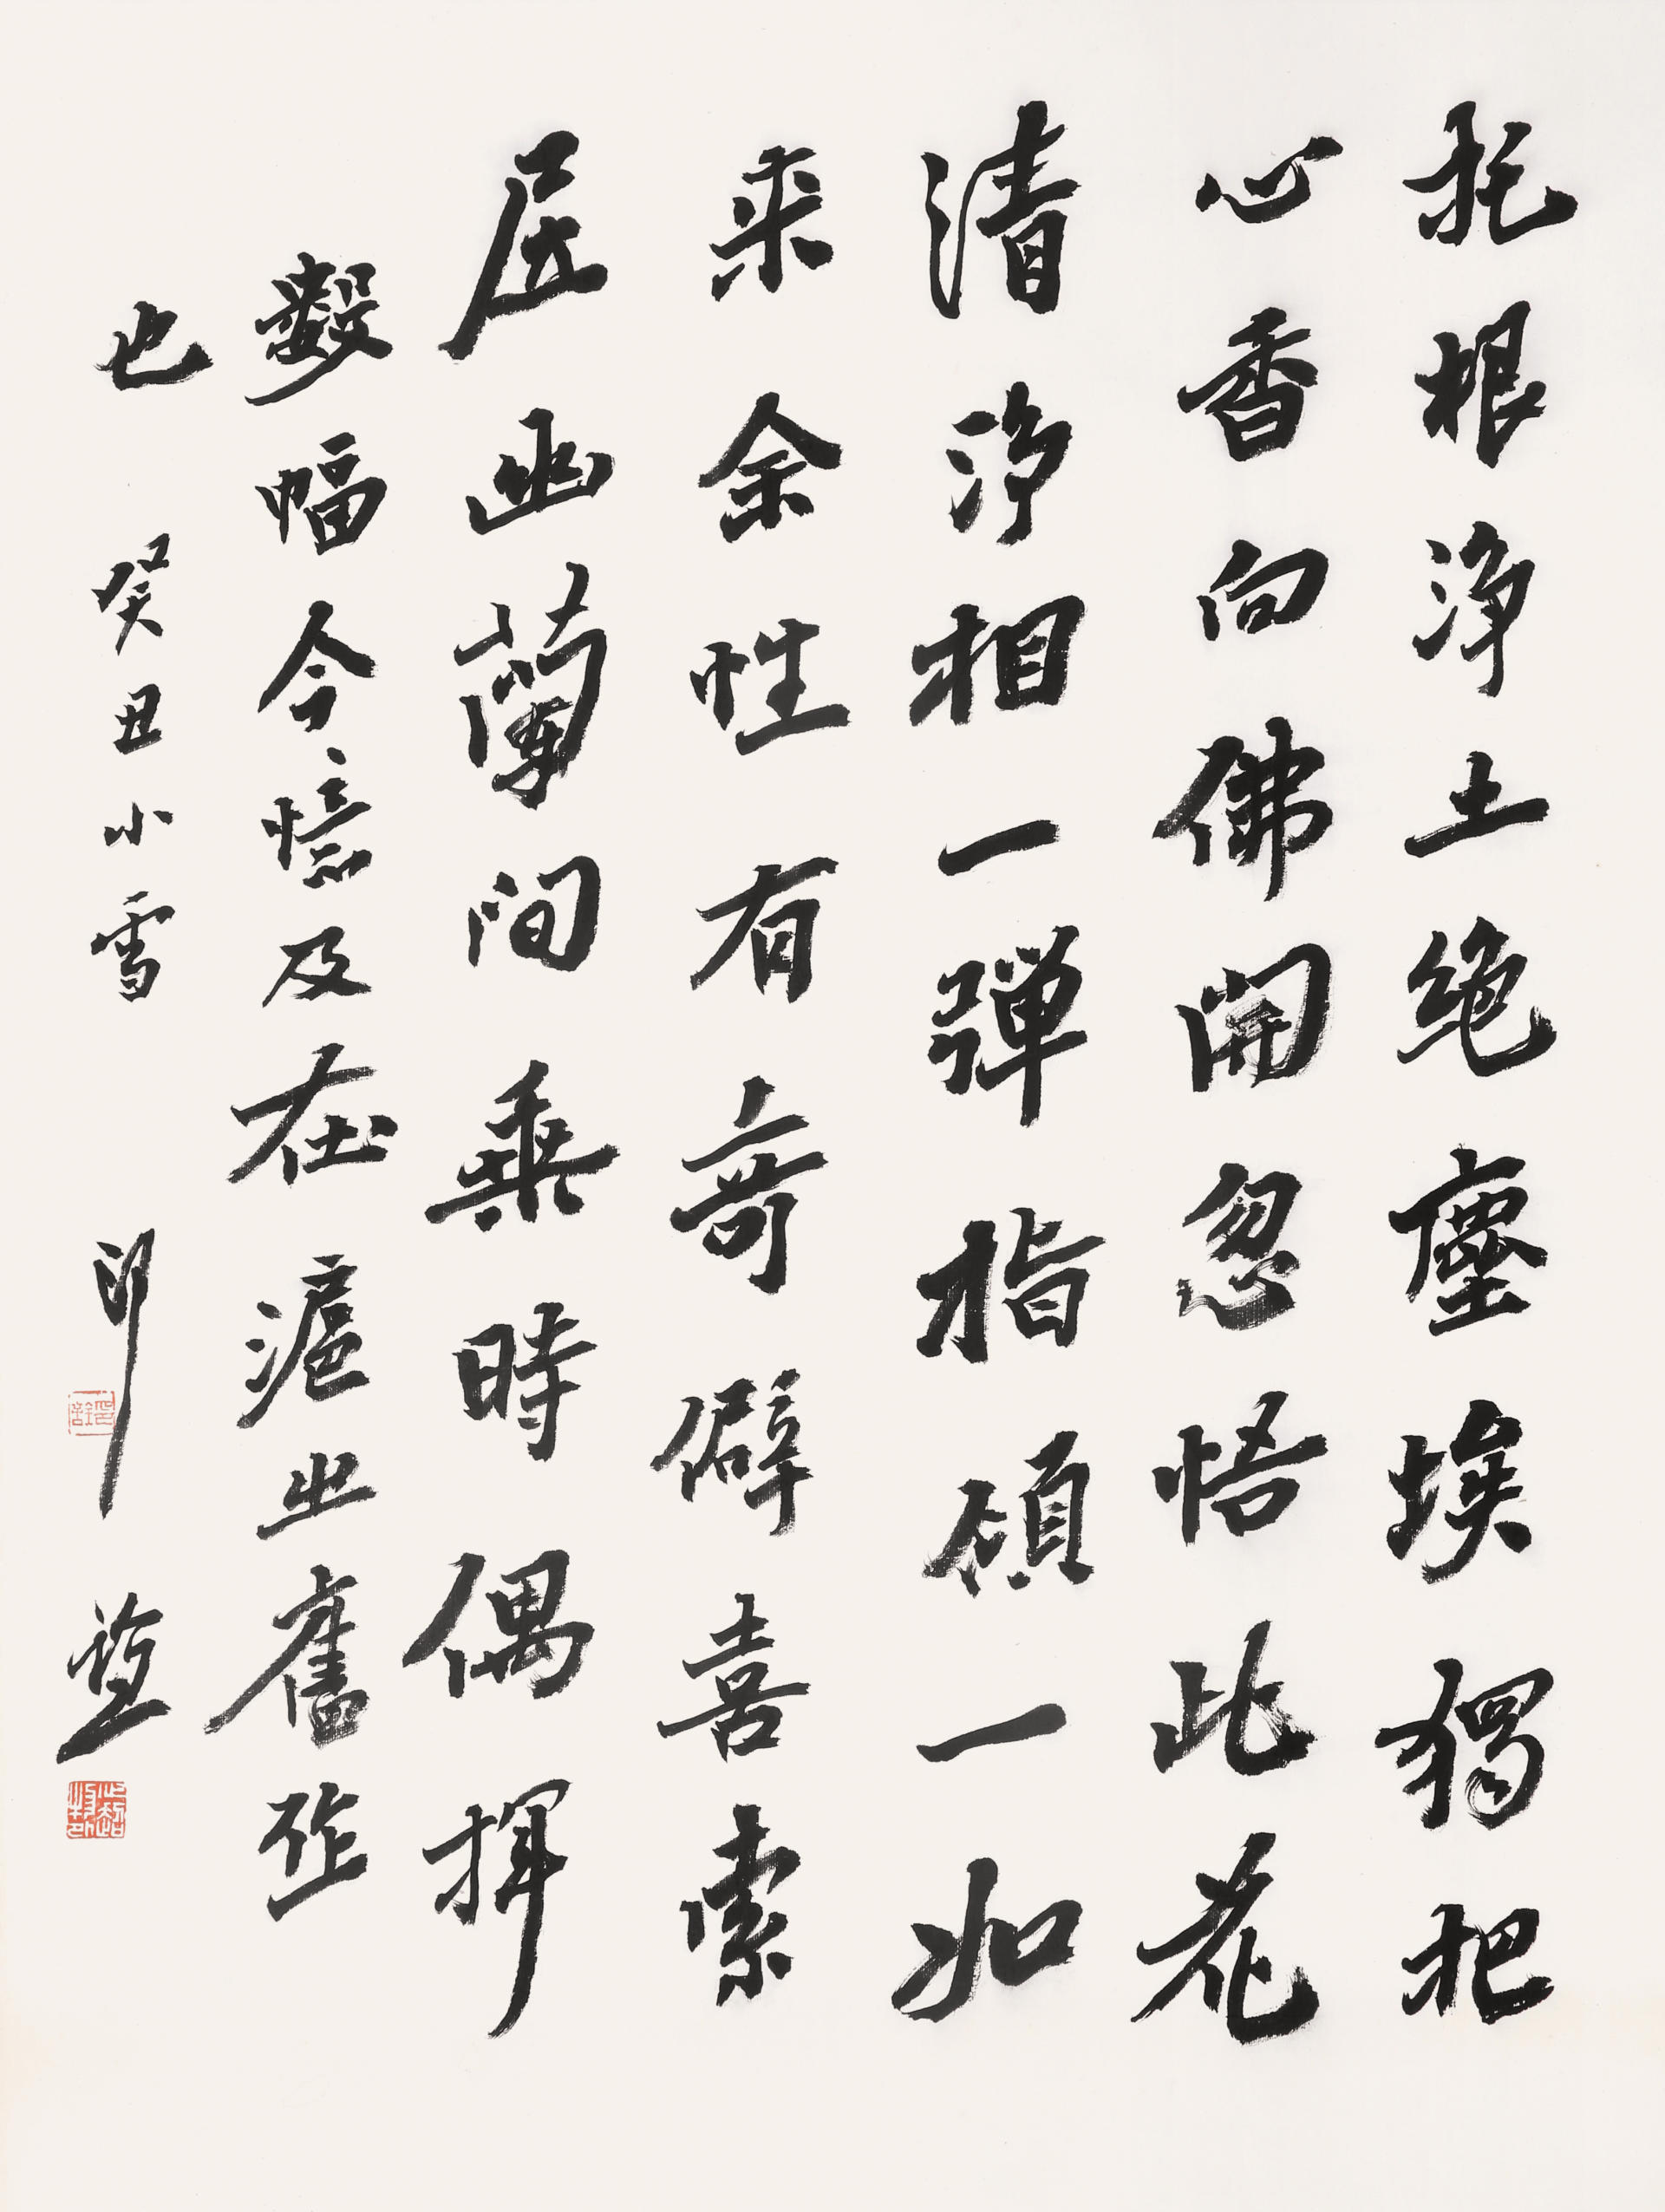 托根淨土絕塵埃獨把
心香向佛開忽悟此花
清淨相一彈指頃一如
來余性有奇僻喜索
居幽蘭間乘時偶揮
數幅今憶及在滬之舊作
也 癸丑小雪